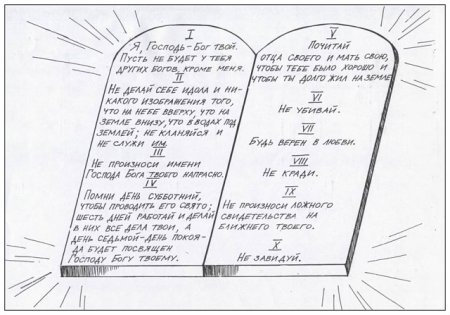 I
Я, Господь-Бог твой.
Пусть не будет у тебя
других богов, кроме меня.
II
Не делай себе идола и ни-
какого изображения того,
что на небе вверху, что на
земле внизу, что в водах под
землей; не кланяйся и
не служи им.
III
Не произноси имени
Господа Бога твоего напрасно.
IV
Помни день субботний,
чтобы проводить его свято;
шесть дней работай и делай
в них все дела твои, а
день седьмой-день покоя-
да будет посвящен
Господу Богу твоему.
V
Почитай
отца своего и мать свою,
чтобы тебе было хорошо и
чтобы ты долго жил на земле
VI
Не убивай.
VII
Будь верен в любви.
VIII
Не кради.
IX
Не произноси ложного
свидетельства на
ближнего твоего.
X
Не завидуй.